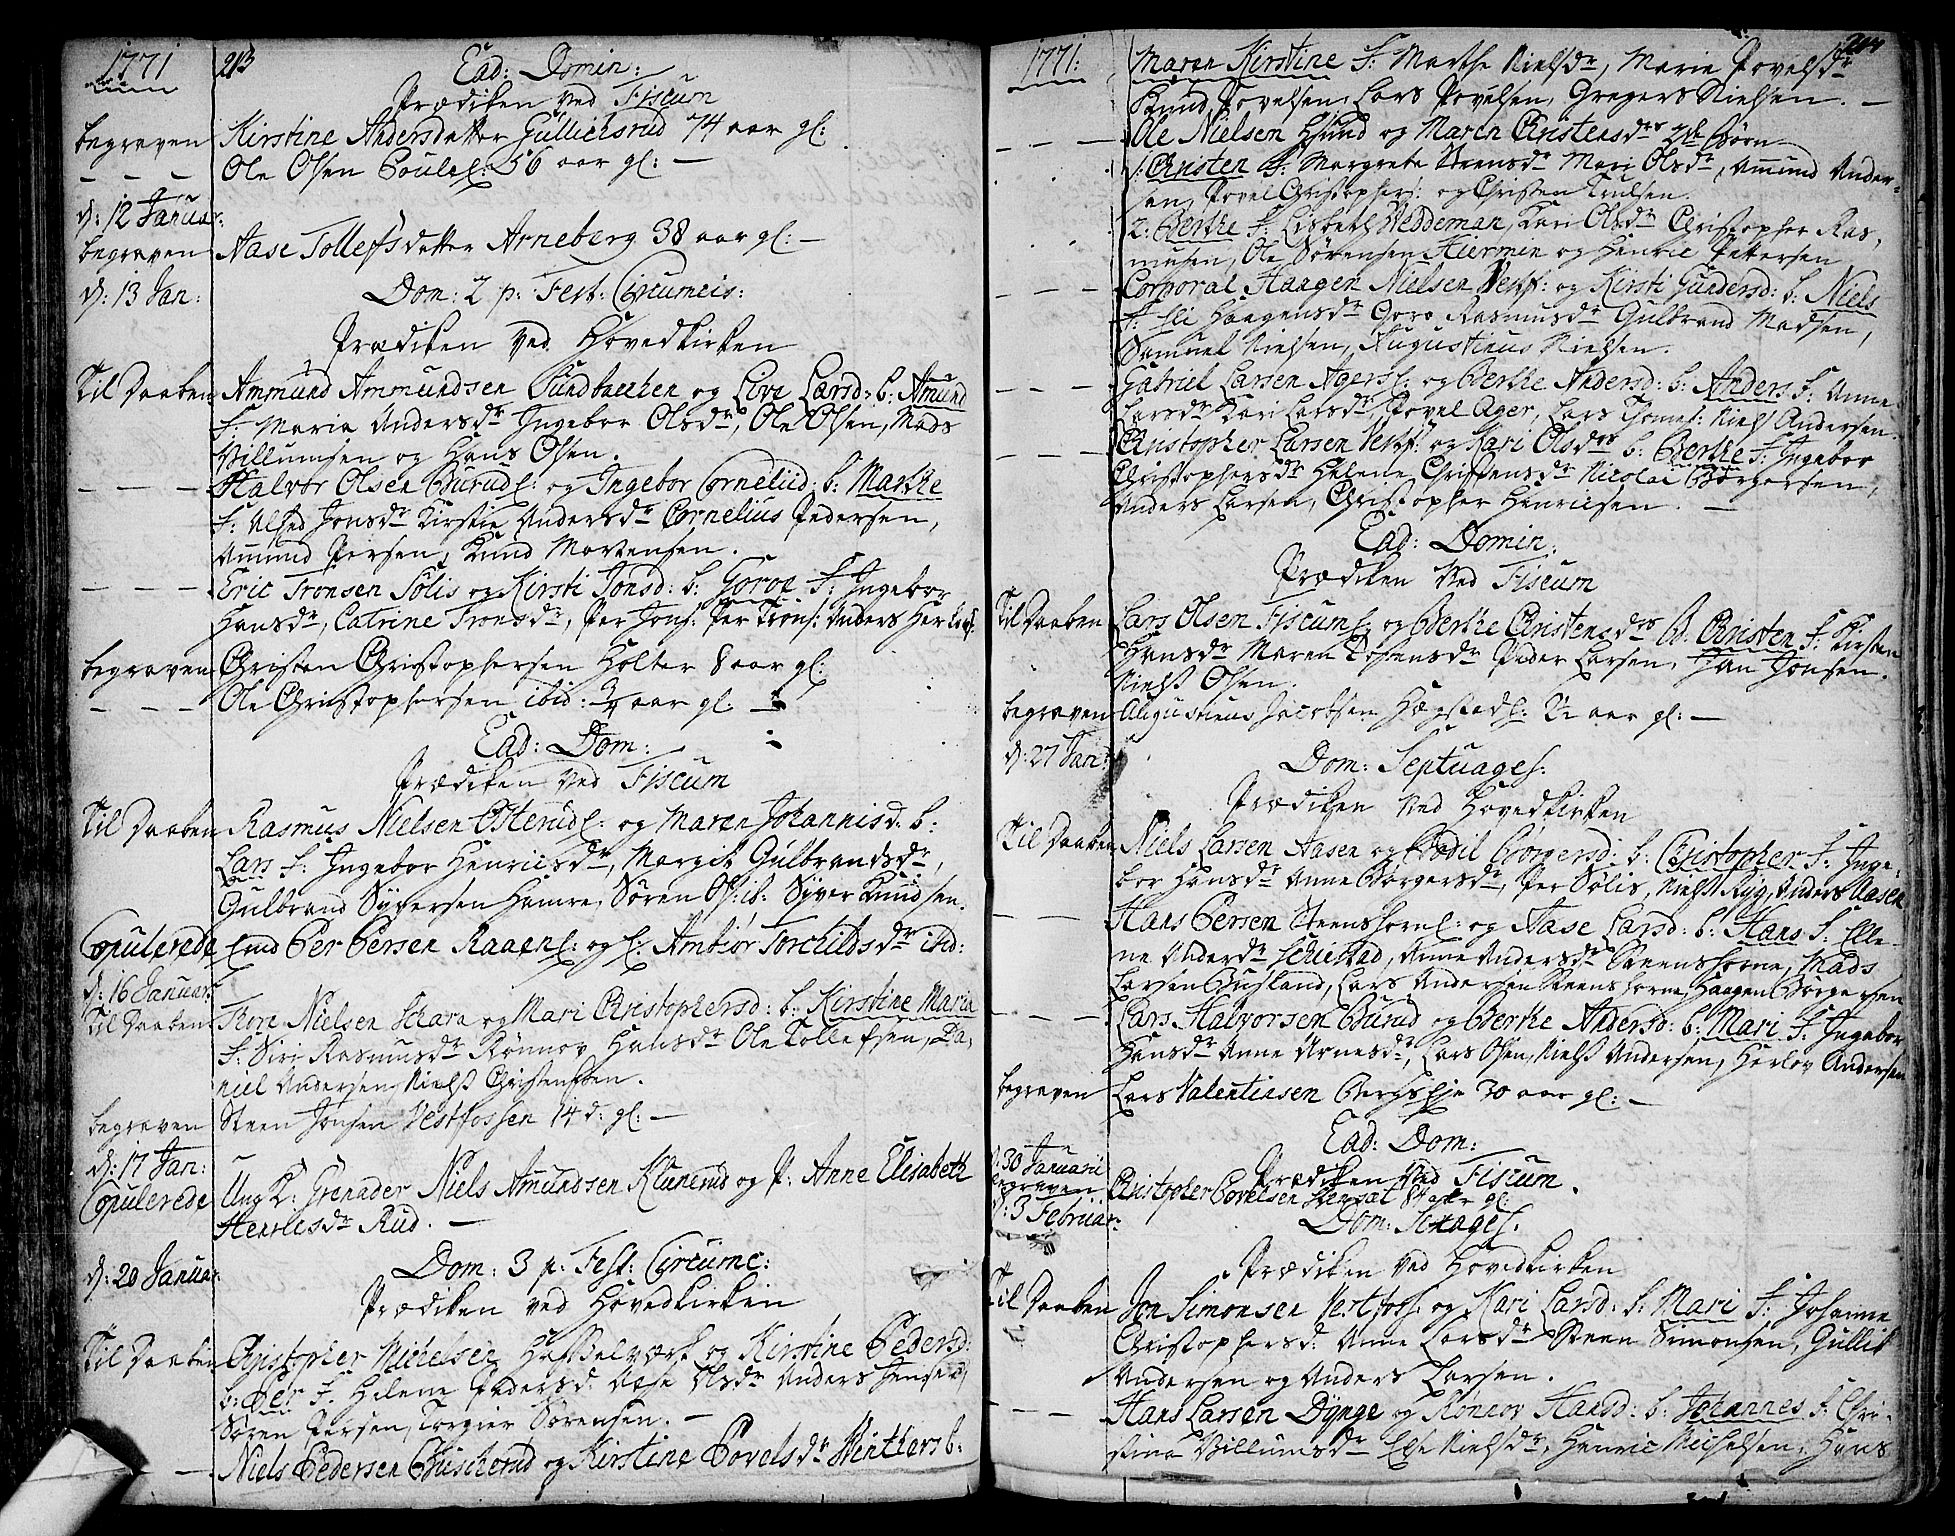 1771
213
Ead: Domin:
Prædiken ved Fiscum
begraven Kirstine Andersdatter Gullichsrud 74 aar gl:
— — — Ole Olsen 56 aar gl: —
d: 12 Januar:
begraven Aase Tollefsdatter Arneberg 38 aar gl: —
d: 13 Jan:
Dom: 2 p: Fest: Circumcis:
Prædiken ved Hovedkirken
Til Daaben Ammund Ammundsen Sundbachen og Live Larsd: b: Amund
F: Maria Andersdr Ingebor Olsdr, Ole Olsen, Mads
Villumsen og Hans Olsen.
— — — Halvor Olsen Burud og Ingebor Cornelid: b: Marthe
F: Jonsdr Kirstie Andersdr Cornelius Pedersen,
Amund Persen, Knud Mortensen.
— — — Eric Tronsen Solis og Kirsti Jonsd: b: Goroe F: Ingebor
Hansdr, Catrine Tronsdr, Per Jons: Per Trons: Anders
begraven Christen Christophersen Holter 8 aar gl:
— — — Ole Christophersen ibid: 3/4 aar gl:
Ead: Dom:
Prædiken ved Fiscum
Til Daaben Rasmus Nielsen Østerud og Maren Johannisd: b:
Lars F: Ingebor Henricsdr, Margit Gulbrandsdr,
Gulbrand Syversen Hamre, Søren Ols: ib: Syver Knudsen.
Copulerede Per Persen Raaen og Ambiør Torchildsdr ibid:
d: 16 Januar:
Til Daaben Thore Nielsen Skara og Mari Christophersd: b: Kirstine Maria
F: Siri Rasmusdr Rønnov Hansdr Ole Tollefsen, Da,
niel Andersen, Niels Christensen.
begraven Steen Jonsen Vestfossen 14 d: gl: —
d: 17 Jan:
Copulerede Ung K: Grenader Niels Amundsen Klunerud og P: Anne Elisabeth
Rud. —
d: 20 Januar:
Dom: 3 p: Fest: Circumc:
Prædiken ved Hovedkirken
Til Daaben Christopher Michelsen Hasselværk og Kirstine Pedersd:
b: Per F: Helene Pedersd: Aase Olsdr Anders Jensen,
Søren Persen, Torgier Sørensen. —
— Niels Pedersen og Kirstine Povelsdr b:
1771:
214
Maren Kirstine F: Marthe Nielsdr, Marie Povelsdr
Knud Povelsen, Lars Povelsen, Gregers Nielsen. —
— — — Ole Nielsen Hund og Maren Christensdrs Børn
1: Christen F: Margrete Steensdr Mari Olsdr, Amund Ander-
sen, Povel Christophers: og Christen Truelsen.
2: Berthe F: Lisbeth Weddeman, Kari Olsdr Christopher Ras,
musen, Ole Sørensen Hiermin og Henric Pettersen
— — — Corporal Haagen Nielsen Vestf: og Kirsti Gundersd: b: Niels
F: Eli Haagensdr Goro Rasmusdr Gulbrand Madsen,
Samuel Nielsen, Augustinus Nielsen.
— — — Gabriel Larsen Agers: og Berthe Andersd: b: Anders F: Anne
Larsdr Kari Larsdr, Povel Ager, Lars Niels Andersen.
— — — Christopher Larsen Vestf: og Kari Olsdrs b: Berthe F: Ingebor
Christophersdr Helene Christensdr Nicolai Børgersen,
Anders Larsen, Christopher Henricsen. —
Ead: Domin:
Prædiken ved Fiscum
Til Daaben Lars Olsen Fiscum og Berthe Christensdrs b: Christen F: Kirsten
Hansdr Maren Peder Larsen, Jan Jonsen.
Niels Olsen.
begraven Augustinus Jacobsen Hægstad: aar gl: —
d: 27 Jan:
Dom: Septuages:
Prædiken ved Hovedkirken
Til Daaben Niels Larsen Aasen og Bodil Børgersd: b: Christopher F: Inge-
bor Hansdr Anne Børgersdr, Per Solis, Niels Ryg, Anders Aasen
— — — Hans Persen Steenshorn: og Aase Larsd: b: Hans F: Elle-
ne Andersdr, Anne Andersdr Steenshorne, Mads
Larsen, Lars Andersen Steenshorne Haagen Børgersen
— — — Lars Halvorsen Burud og Berthe Andersd: b: Mari F: Ingebor
Hansdr Anne Arnesdr, Lars Olsen, Niels Andersen, Herlov Andersen
begraven Lars Valentinsen 30 aar gl: —
Ead: Dom:
d: 30 Januarii
Prædiken ved Fiscum.
begraven Christopher Povelsen aar gl:
d: 3 Februar:
Dom: Sexages:
Prædiken ved Hovedkirken
Til Daaben Jon Simonsen Vestfos: og Kari Larsd: b: Mari F: Johanne
Christophersd: Anne Larsdr Steen Simonsen, Gullik
Andersen og Anders Larsen.
— — — Hans Larsen Dynge og Rønnov Hansd: b: Johannes F: Chri-
stina Villumsdr Else Nielsdr, Henric Michelsen, Hans